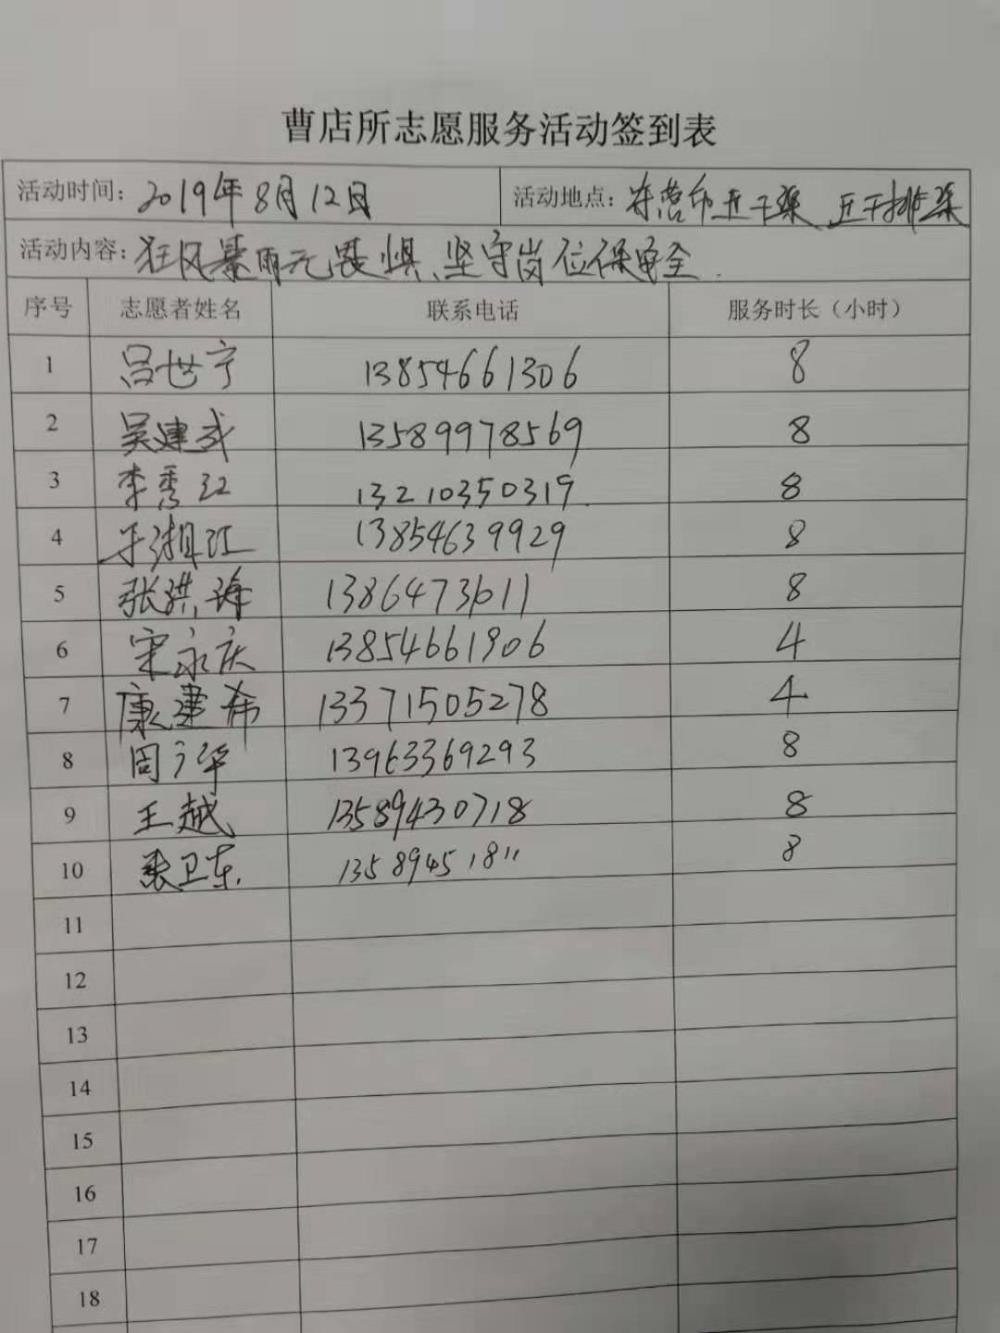 曹店所志愿服务活动签到表
活动时间：2019年8月12日 活动地点：五干渠 五干排渠
活动内容：狂风暴雨无畏惧、坚守岗位保安全.
序号 志愿者姓名 联系电话 服务时长（小时）
1 吕世宁 13854661306 8
2 吴建武 13589978569 8
3 李秀江 13210350319 8
4 于湘江 13854639929 8
5 张洪涛 1386473611 8
6 宋永庆 13854661906 4
7 康建希 13371505278 4
8 周广华 13963369293 8
9 王越 13589430718 8
10 张卫东 13589451811 8
11
12
13
14
15
16
17
18